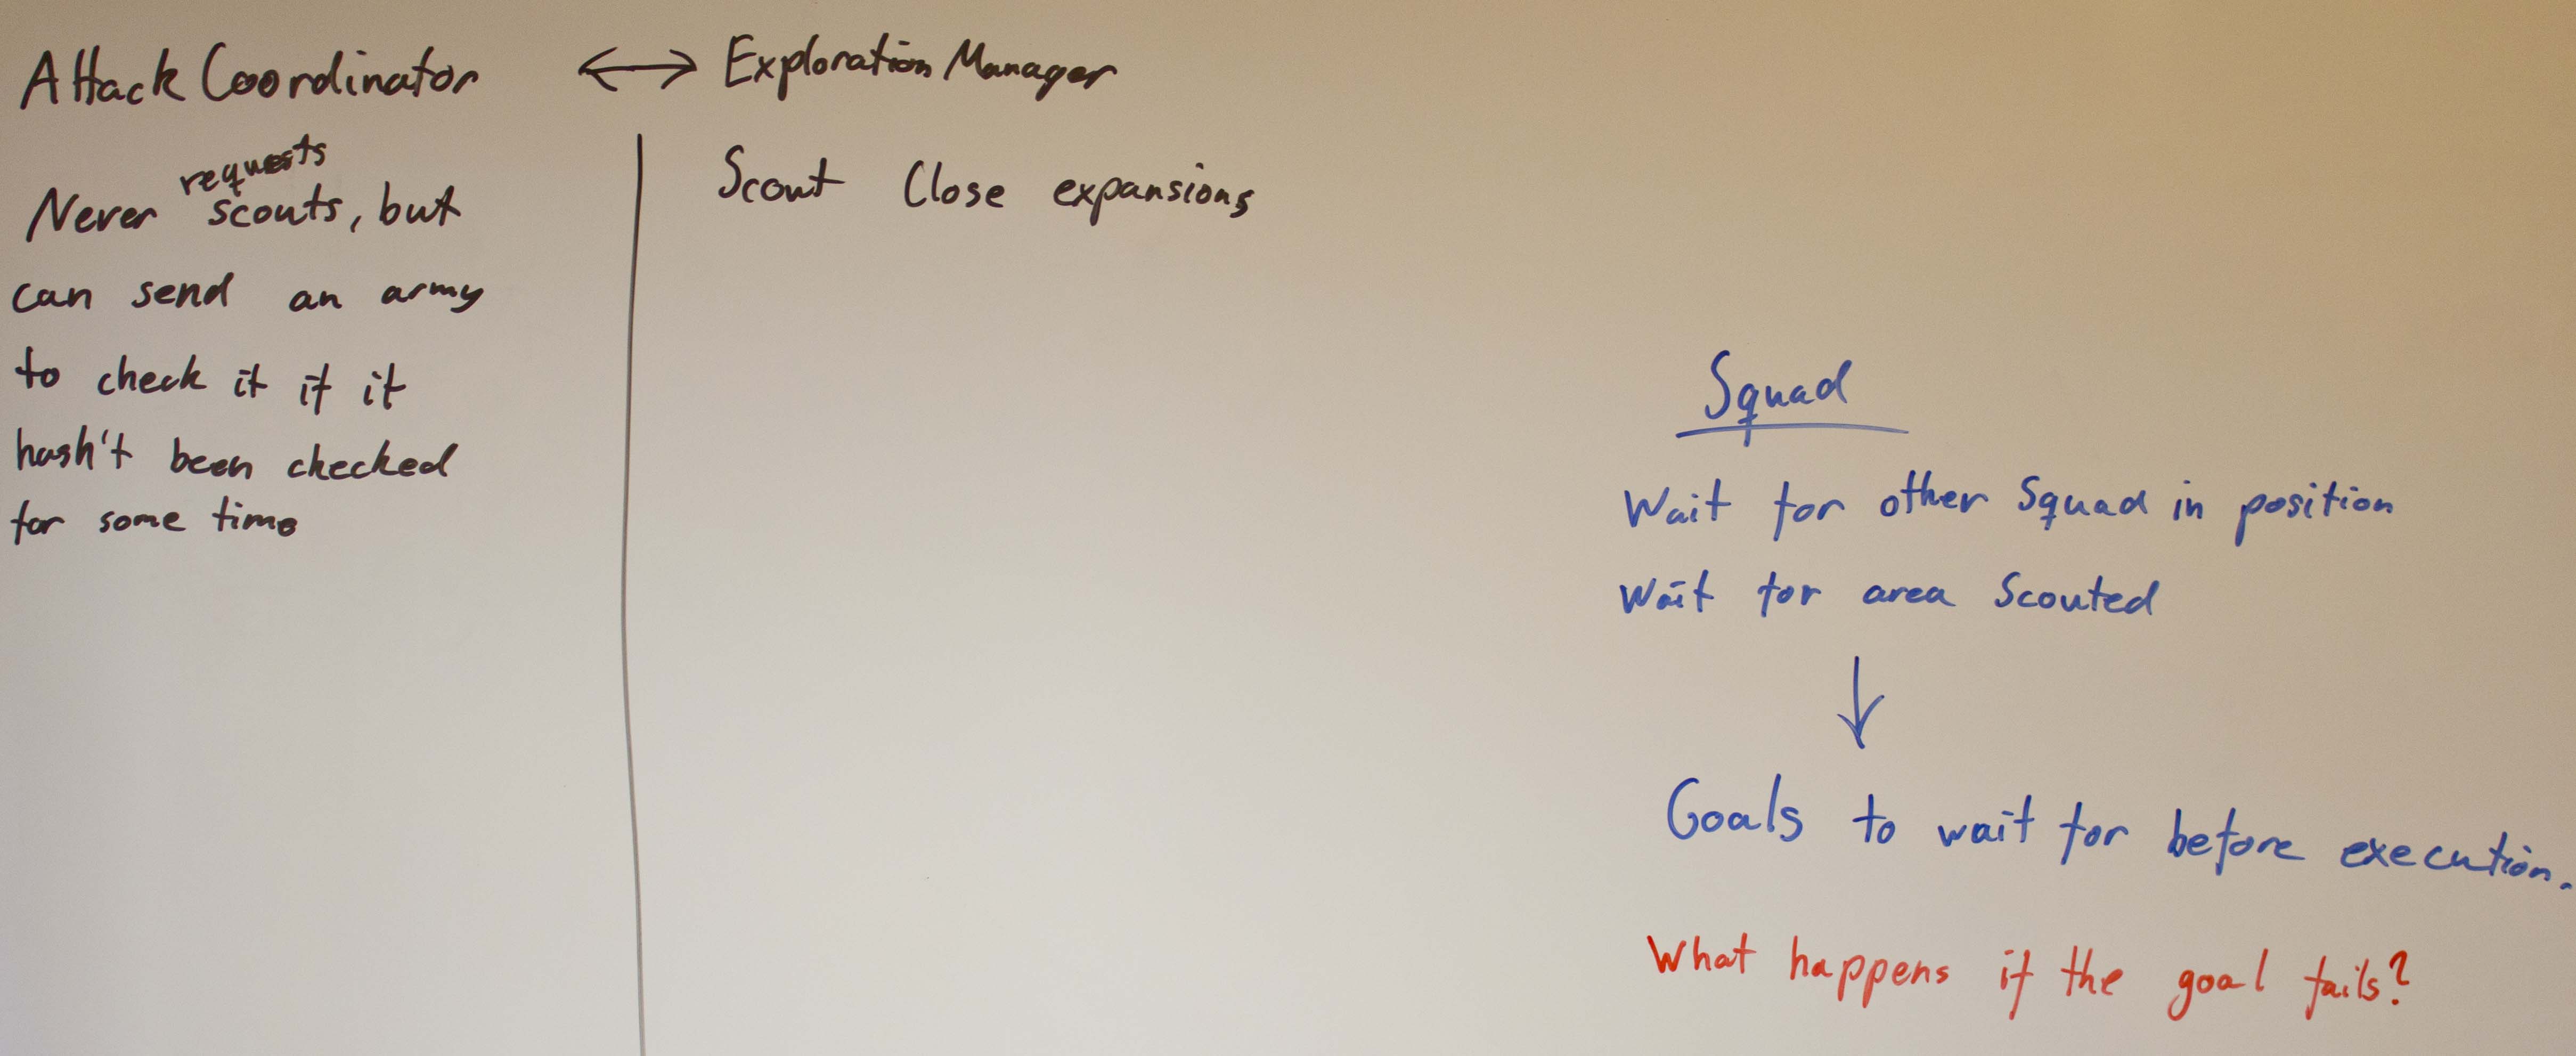 Attack Coordinator ↔ Exploration Manager
requests
Never scouts, but
can send an army
to check it if it
hash't been checked
for some time
Scout Close expansions
Squad
Wait for other Squad in position
Wait for area Scouted
↓
Goals to wait for before execution.
What happens if the goal fails?